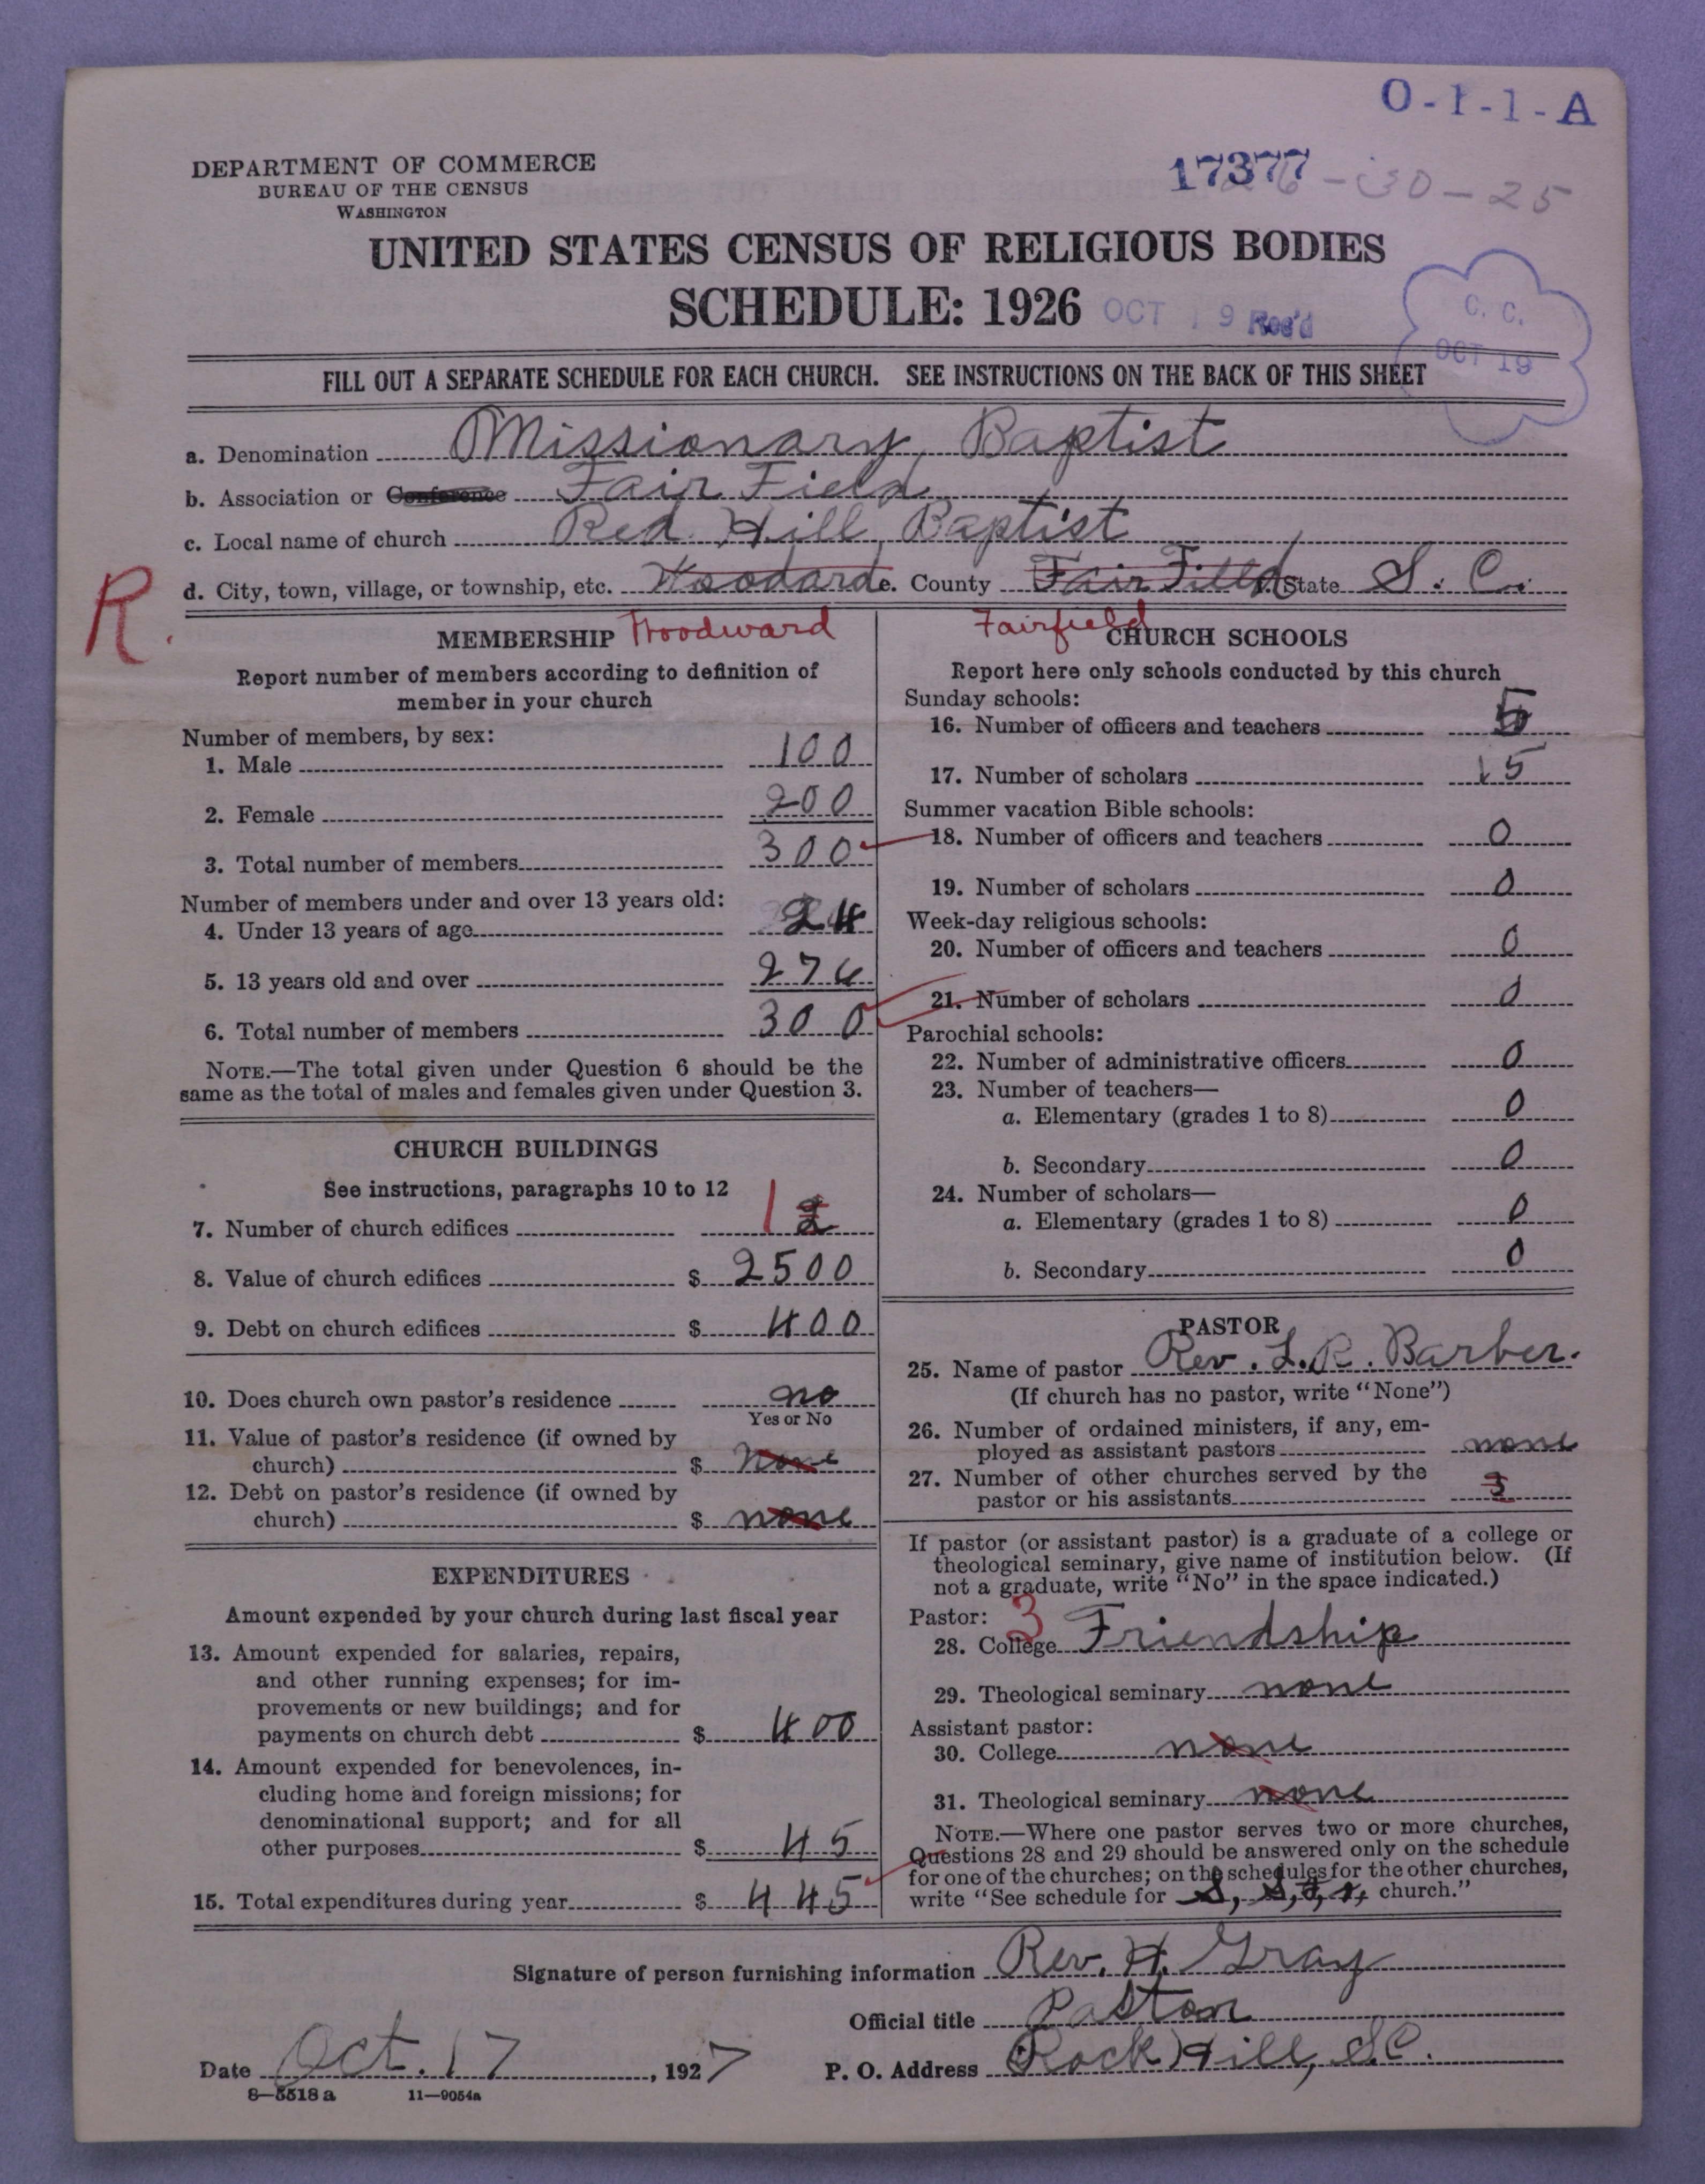 O-1-1-A
DEPARTMENT OF COMMERCE
BUREAU OF THE CENSUS
WASHINGTON
17377 -30-25
UNITED STATES CENSUS OF RELIGIOUS BODIES
SCHEDULE: 1926 OCT 19 Rec'd
C. C.
OCT 19
FILL OUT A SEPARATE SCHEDULE FOR EACH CHURCH. SEE INSTRUCTIONS ON THE BACK OF THIS SHEET
a. Denomination Missionary Baptist
b. Association or Conference Fair Field
c. Local name of church Red Hill Baptist
d. City, town, village, or township, etc. Woodard e. County Fair Filld f. State S. C.
R.
MEMBERSHIP Woodward
Report number of members according to definition of
member in your church
Number of members, by sex:
1. Male 100
2. Female 200
3. Total number of members 300
Number of members under and over 13 years old:
4. Under 13 years of age 24
5. 13 years old and over 276
6. Total number of members 300
NOTE.—The total given under Question 6 should be the
same as the total of males and females given under Question 3.
CHURCH BUILDINGS
See instructions, paragraphs 10 to 12
7. Number of church edifices 1 2
8. Value of church edifices $ 2500
9. Debt on church edifices $ 400
10. Does church own pastor's residence no
Yes or No
11. Value of pastor's residence (if owned by
church) $ None
12. Debt on pastor's residence (if owned by
church) $ none
EXPENDITURES
Amount expended by your church during last fiscal year
13. Amount expended for salaries, repairs,
and other running expenses; for im-
provements or new buildings; and for
payments on church debt $ 400
14. Amount expended for benevolences, in-
cluding home and foreign missions; for
denominational support; and for all
other purposes $ 45
15. Total expenditures during year $ 445
Fairfield CHURCH SCHOOLS
Report here only schools conducted by this church
Sunday schools:
16. Number of officers and teachers 5
17. Number of scholars 15
Summer vacation Bible schools:
18. Number of officers and teachers 0
19. Number of scholars 0
Week-day religious schools:
20. Number of officers and teachers 0
21. Number of scholars 0
Parochial schools:
22. Number of administrative officers 0
23. Number of teachers—
a. Elementary (grades 1 to 8) 0
b. Secondary 0
24. Number of scholars—
a. Elementary (grades 1 to 8) 0
b. Secondary 0
PASTOR
25. Name of pastor Rev. L. R. Barber.
(If church has no pastor, write "None")
26. Number of ordained ministers, if any, em-
ployed as assistant pastors none
27. Number of other churches served by the
pastor or his assistants 3
If pastor (or assistant pastor) is a graduate of a college or
theological seminary, give name of institution below. (If
not a graduate, write "No" in the space indicated.)
Pastor: 3
28. College Friendship
29. Theological seminary none
Assistant pastor:
30. College none
31. Theological seminary none
NOTE.—Where one pastor serves two or more churches,
Questions 28 and 29 should be answered only on the schedule
for one of the churches; on the schedules for the other churches,
write "See schedule for church."
Signature of person furnishing information Rev. H. Gray
Official title Pastor
Date Oct. 17, 1927 P. O. Address Rock Hill, S.C.
8—5518 a 11—9054a